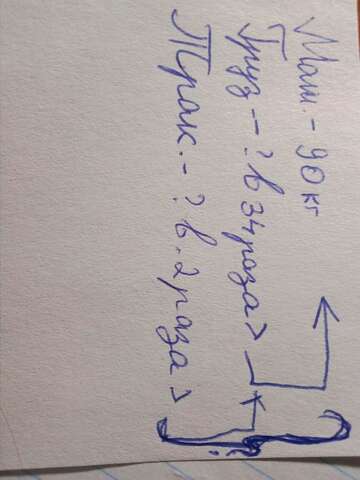 Маш. - 90 кг
Груз - ? в 34 раза >
Трак. - ? в. 2 раза > ?